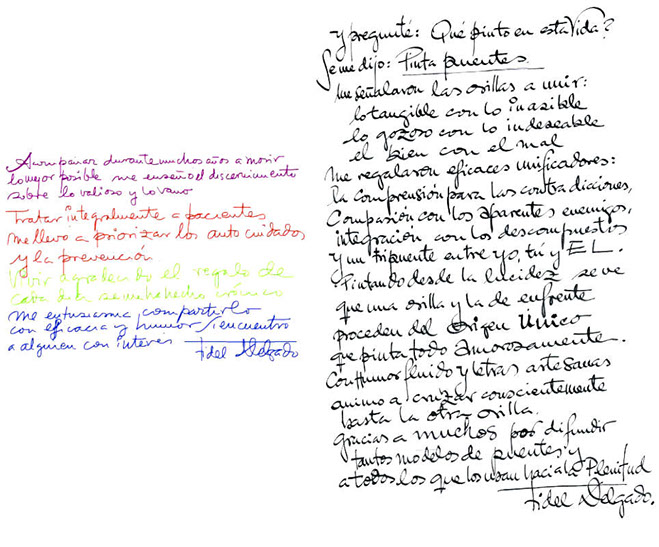 Acompañar durante muchos años a morir
lo mejor posible me enseñó el discernimiento
sobre lo valioso y lo vano
Tratar integralmente a pacientes
me llevo a priorizar los auto cuidados
y la prevención.
Vivir agradeciendo el regalo de
cada día se me ha hecho crónico
Me entusiasma compartirlo
con eficacia y humor si encuentro
a alguien con interés
Fidel Delgado
y pregunté: Qué pinto en esta Vida?
Se me dijo: Pinta puentes.
Me señalaron las orillas a unir:
lo tangible con lo inasible
lo gozoso con lo indeseable
el bien con el mal
Me regalaron eficaces unificadores:
la comprensión para las contradicciones,
Compasión con los aparentes enemigos,
integración con los descompuestos
y un tripuente entre yo, tú y EL.
Pintando desde la lucidez se ve
que una orilla y la de enfrente
proceden del Origen Único
que pinta todo amorosamente.
Con humor fluido y letras artesanas
animo a cruzar conscientemente
hasta la otra orilla.
gracias a muchos por difundir
tantos modelos de puentes y
a todos los que los usan hacia la Plenitud
Fidel Delgado.